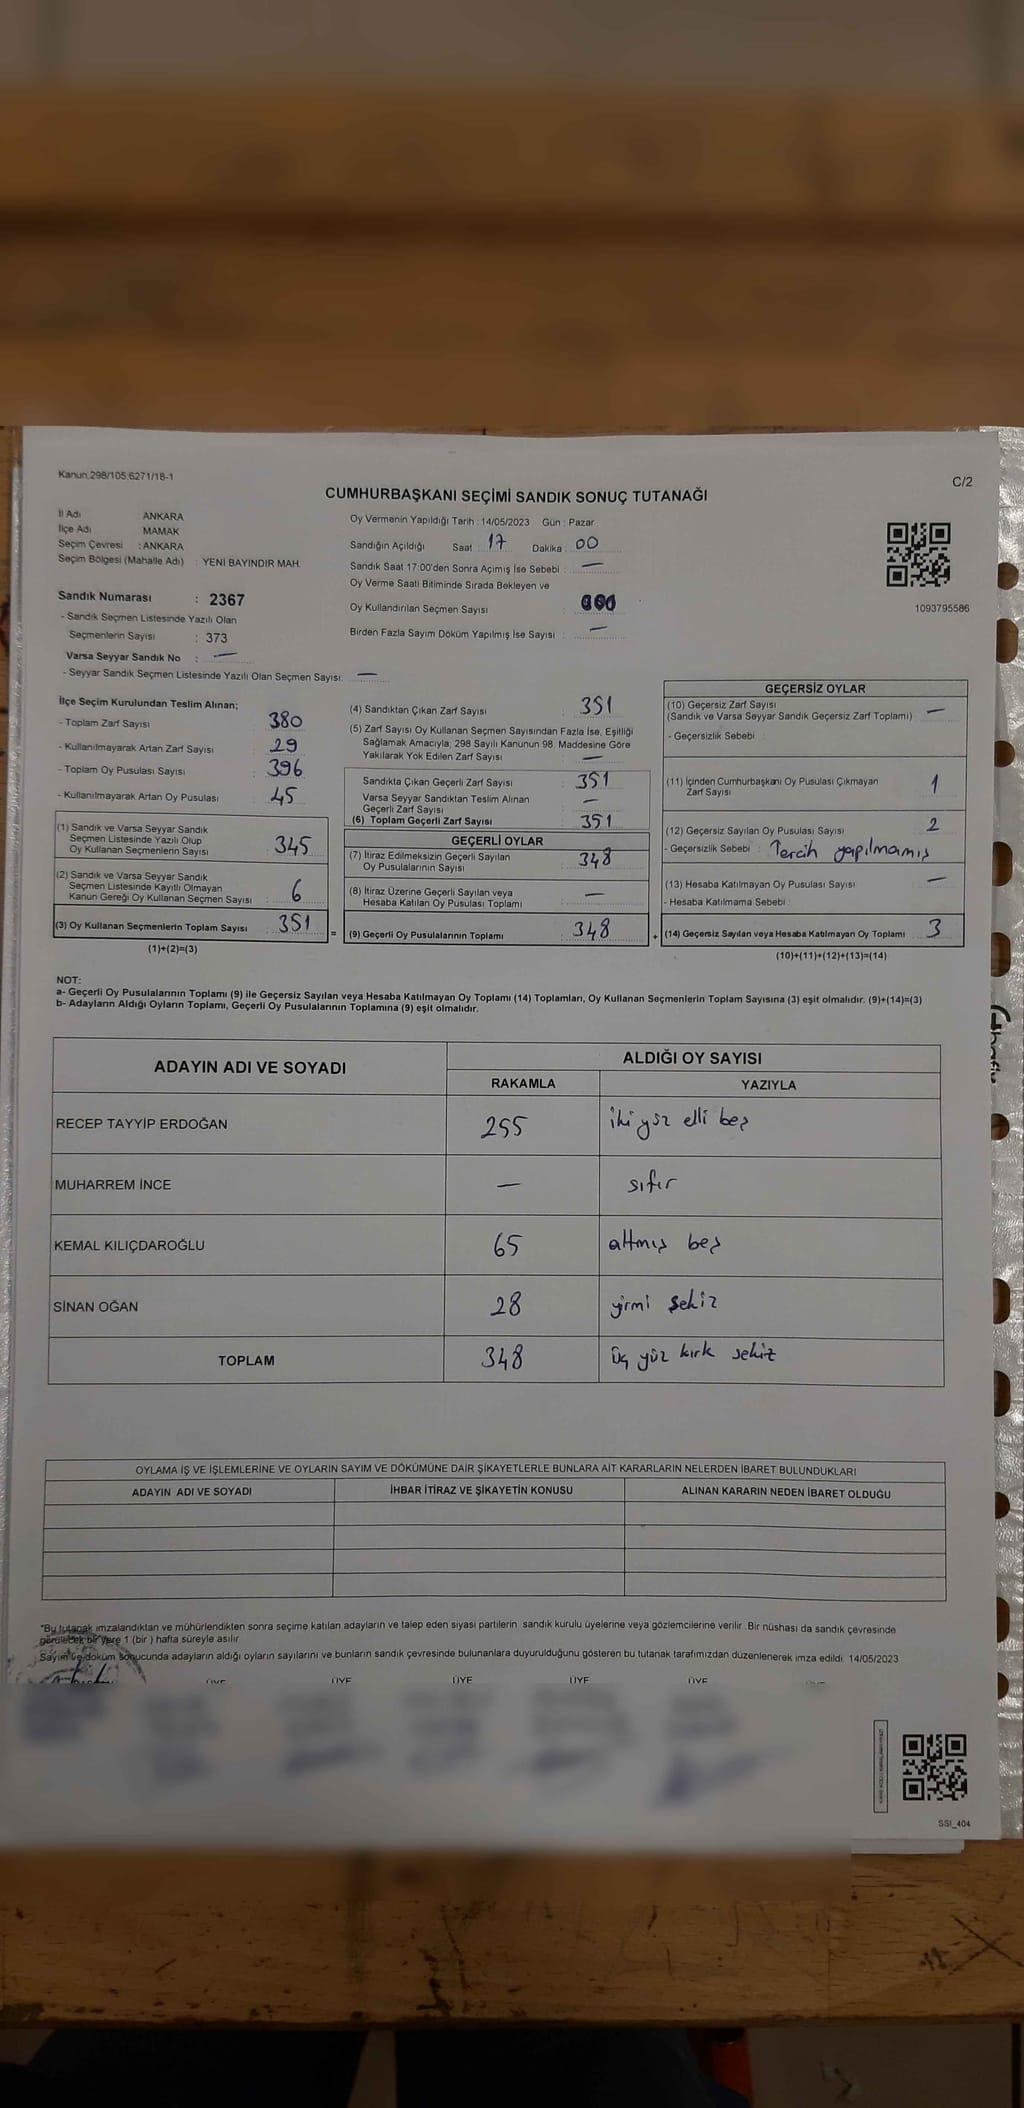 Kanun:298/105,6271/18-1
C/2
CUMHURBAŞKANI SEÇİMİ SANDIK SONUÇ TUTANAĞI
İl Adı ANKARA
İlçe Adı MAMAK
Seçim Çevresi : ANKARA
Seçim Bölgesi (Mahalle Adı) : YENİ BAYINDIR MAH.
Oy Vermenin Yapıldığı Tarih : 14/05/2023 Gün : Pazar
Sandığın Açıldığı Saat : 17 Dakika : 00
Sandık Saat 17:00'den Sonra Açımış İse Sebebi : —
Oy Verme Saati Bitiminde Sırada Bekleyen ve
Oy Kullandırılan Seçmen Sayısı : 000
Birden Fazla Sayım Döküm Yapılmış İse Sayısı : —
1093795586
Sandık Numarası : 2367
- Sandık Seçmen Listesinde Yazılı Olan
Seçmenlerin Sayısı : 373
Varsa Seyyar Sandık No : —
- Seyyar Sandık Seçmen Listesinde Yazılı Olan Seçmen Sayısı: —
İlçe Seçim Kurulundan Teslim Alınan;
- Toplam Zarf Sayısı : 380
- Kullanılmayarak Artan Zarf Sayısı : 29
- Toplam Oy Pusulası Sayısı : 396
- Kullanılmayarak Artan Oy Pusulası : 45
(1) Sandık ve Varsa Seyyar Sandık
Seçmen Listesinde Yazılı Olup
Oy Kullanan Seçmenlerin Sayısı : 345
(2) Sandık ve Varsa Seyyar Sandık
Seçmen Listesinde Kayıtlı Olmayan
Kanun Gereği Oy Kullanan Seçmen Sayısı : 6
(3) Oy Kullanan Seçmenlerin Toplam Sayısı : 351
(1)+(2)=(3)
=
(4) Sandıktan Çıkan Zarf Sayısı : 351
(5) Zarf Sayısı Oy Kullanan Seçmen Sayısından Fazla İse, Eşitliği
Sağlamak Amacıyla; 298 Sayılı Kanunun 98. Maddesine Göre
Yakılarak Yok Edilen Zarf Sayısı : —
Sandıkta Çıkan Geçerli Zarf Sayısı : 351
Varsa Seyyar Sandıktan Teslim Alınan
Geçerli Zarf Sayısı : —
(6) Toplam Geçerli Zarf Sayısı : 351
GEÇERLİ OYLAR
(7) İtiraz Edilmeksizin Geçerli Sayılan
Oy Pusulalarının Sayısı : 348
(8) İtiraz Üzerine Geçerli Sayılan veya
Hesaba Katılan Oy Pusulası Toplamı : —
(9) Geçerli Oy Pusulalarının Toplamı : 348
+
GEÇERSİZ OYLAR
(10) Geçersiz Zarf Sayısı
(Sandık ve Varsa Seyyar Sandık Geçersiz Zarf Toplamı) : —
- Geçersizlik Sebebi :
(11) İçinden Cumhurbaşkanı Oy Pusulası Çıkmayan
Zarf Sayısı 1
(12) Geçersiz Sayılan Oy Pusulası Sayısı : 2
- Geçersizlik Sebebi : Tercih yapılmamış
(13) Hesaba Katılmayan Oy Pusulası Sayısı : —
- Hesaba Katılmama Sebebi :
(14) Geçersiz Sayılan veya Hesaba Katılmayan Oy Toplamı : 3
(10)+(11)+(12)+(13)=(14)
NOT:
a- Geçerli Oy Pusulalarının Toplamı (9) ile Geçersiz Sayılan veya Hesaba Katılmayan Oy Toplamı (14) Toplamları, Oy Kullanan Seçmenlerin Toplam Sayısına (3) eşit olmalıdır. (9)+(14)=(3)
b- Adayların Aldığı Oyların Toplamı, Geçerli Oy Pusulalarının Toplamına (9) eşit olmalıdır.
ADAYIN ADI VE SOYADI ALDIĞI OY SAYISI
RAKAMLA YAZIYLA
RECEP TAYYİP ERDOĞAN 255 iki yüz elli beş
MUHARREM İNCE — sıfır
KEMAL KILIÇDAROĞLU 65 altmış beş
SİNAN OĞAN 28 yirmi sekiz
TOPLAM 348 üç yüz kırk sekiz
OYLAMA İŞ VE İŞLEMLERİNE VE OYLARIN SAYIM VE DÖKÜMÜNE DAİR ŞİKAYETLERLE BUNLARA AİT KARARLARIN NELERDEN İBARET BULUNDUKLARI
ADAYIN ADI VE SOYADI İHBAR İTİRAZ VE ŞİKAYETİN KONUSU ALINAN KARARIN NEDEN İBARET OLDUĞU
*Bu tutanak imzalandıktan ve mühürlendikten sonra seçime katılan adayların ve talep eden siyasi partilerin sandık kurulu üyelerine veya gözlemcilerine verilir. Bir nüshası da sandık çevresinde
görülecek bir yere 1 (bir ) hafta süreyle asılır.
Sayım ve döküm sonucunda adayların aldığı oyların sayılarını ve bunların sandık çevresinde bulunanlara duyurulduğunu gösteren bu tutanak tarafımızdan düzenlenerek imza edildi. 14/05/2023
ÜYE ÜYE ÜYE ÜYE ÜYE
SSI_404